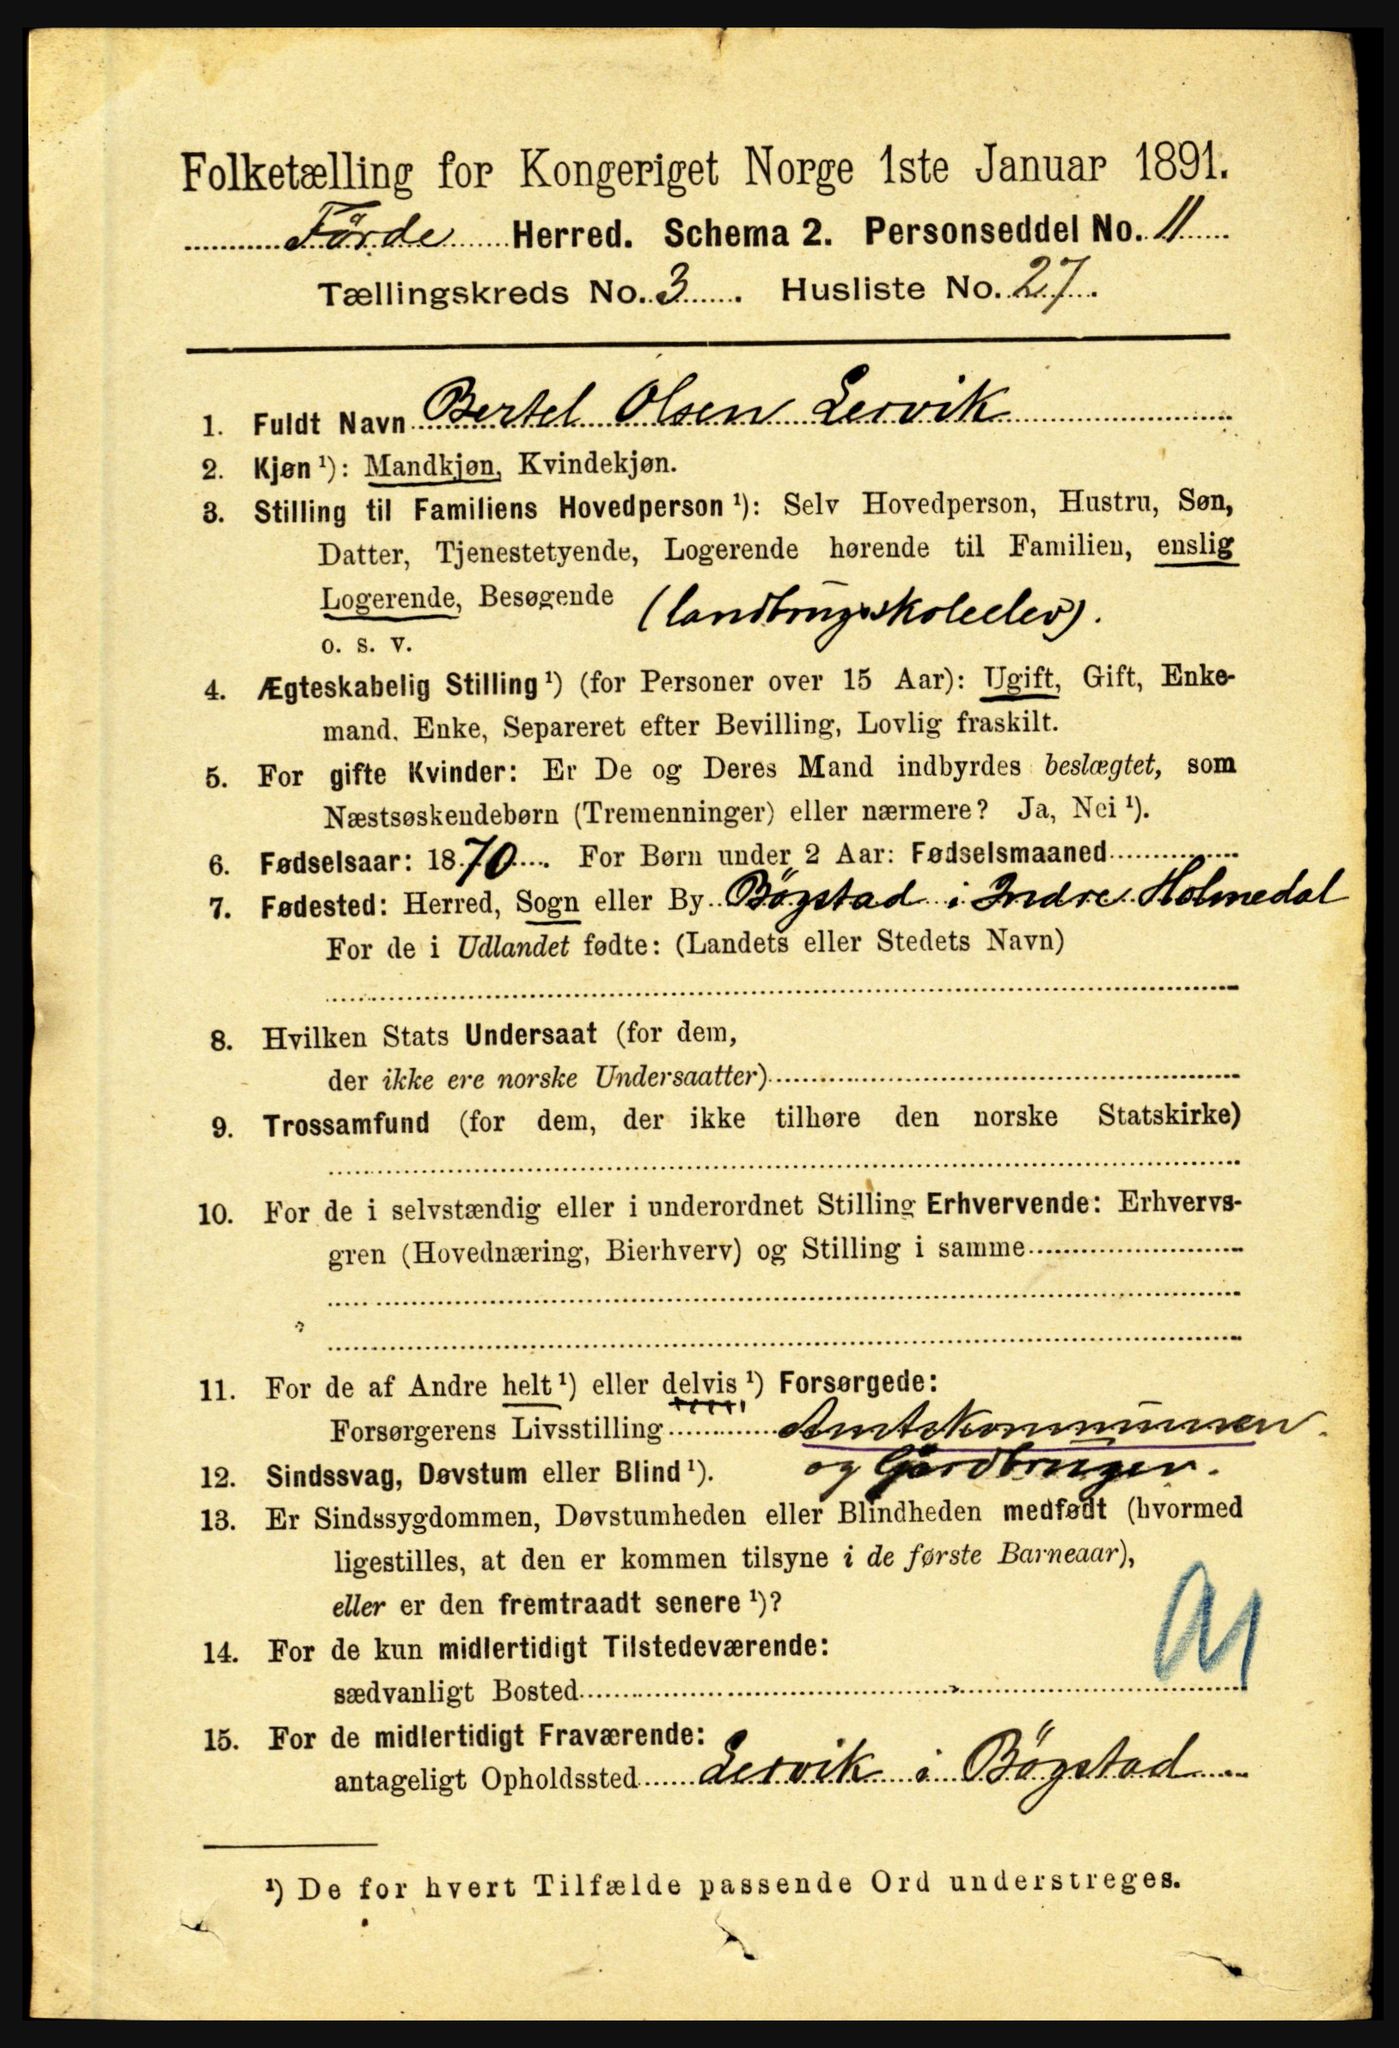 Folketælling for Kongeriget Norge 1ste Januar 1891.
Førde Herred. Schema 2. Personseddel No. 11
Tællingskreds No. 3. Husliste No. 27.
1. Fuldt Navn Bertel Olsen Lervik
2. Kjøn ¹): Mandkjøn, Kvindekjøn.
3. Stilling til Familiens Hovedperson ¹): Selv Hovedperson, Hustru, Søn,
Datter, Tjenestetyende, Logerende hørende til Familien, enslig
Logerende, Besøgende (landbrugsskoleelev).
o. s. v.
4. Ægteskabelig Stilling ¹) (for Personer over 15 Aar): Ugift, Gift, Enke-
mand. Enke, Separeret efter Bevilling, Lovlig fraskilt.
5. For gifte Kvinder: Er De og Deres Mand indbyrdes beslægtet, som
Næstsøskendebørn (Tremenninger) eller nærmere? Ja, Nei ¹).
6. Fødselsaar: 1870. For Børn under 2 Aar: Fødselsmaaned
7. Fødested: Herred, Sogn eller By Bøgstad i Indre Holmedal
For de i Udlandet fødte: (Landets eller Stedets Navn)
8. Hvilken Stats Undersaat (for dem,
der ikke ere norske Undersaatter)
9. Trossamfund (for dem, der ikke tilhøre den norske Statskirke)
10. For de i selvstændig eller i underordnet Stilling Erhvervende: Erhvervs-
gren (Hovednæring, Bierhverv) og Stilling i samme
11. For de af Andre helt ¹) eller delvis ¹) Forsørgede:
Forsørgerens Livsstilling Amtskommunen
og Gårdbruger.
12. Sindssvag, Døvstum eller Blind ¹).
13. Er Sindssygdommen, Døvstumheden eller Blindheden medfødt (hvormed
ligestilles, at den er kommen tilsyne i de første Barneaar),
eller er den fremtraadt senere ¹)?
14. For de kun midlertidigt Tilstedeværende:
sædvanligt Bosted
15. For de midlertidigt Fraværende:
antageligt Opholdssted Lervik i Bøgstad
¹) De for hvert Tilfælde passende Ord understreges.